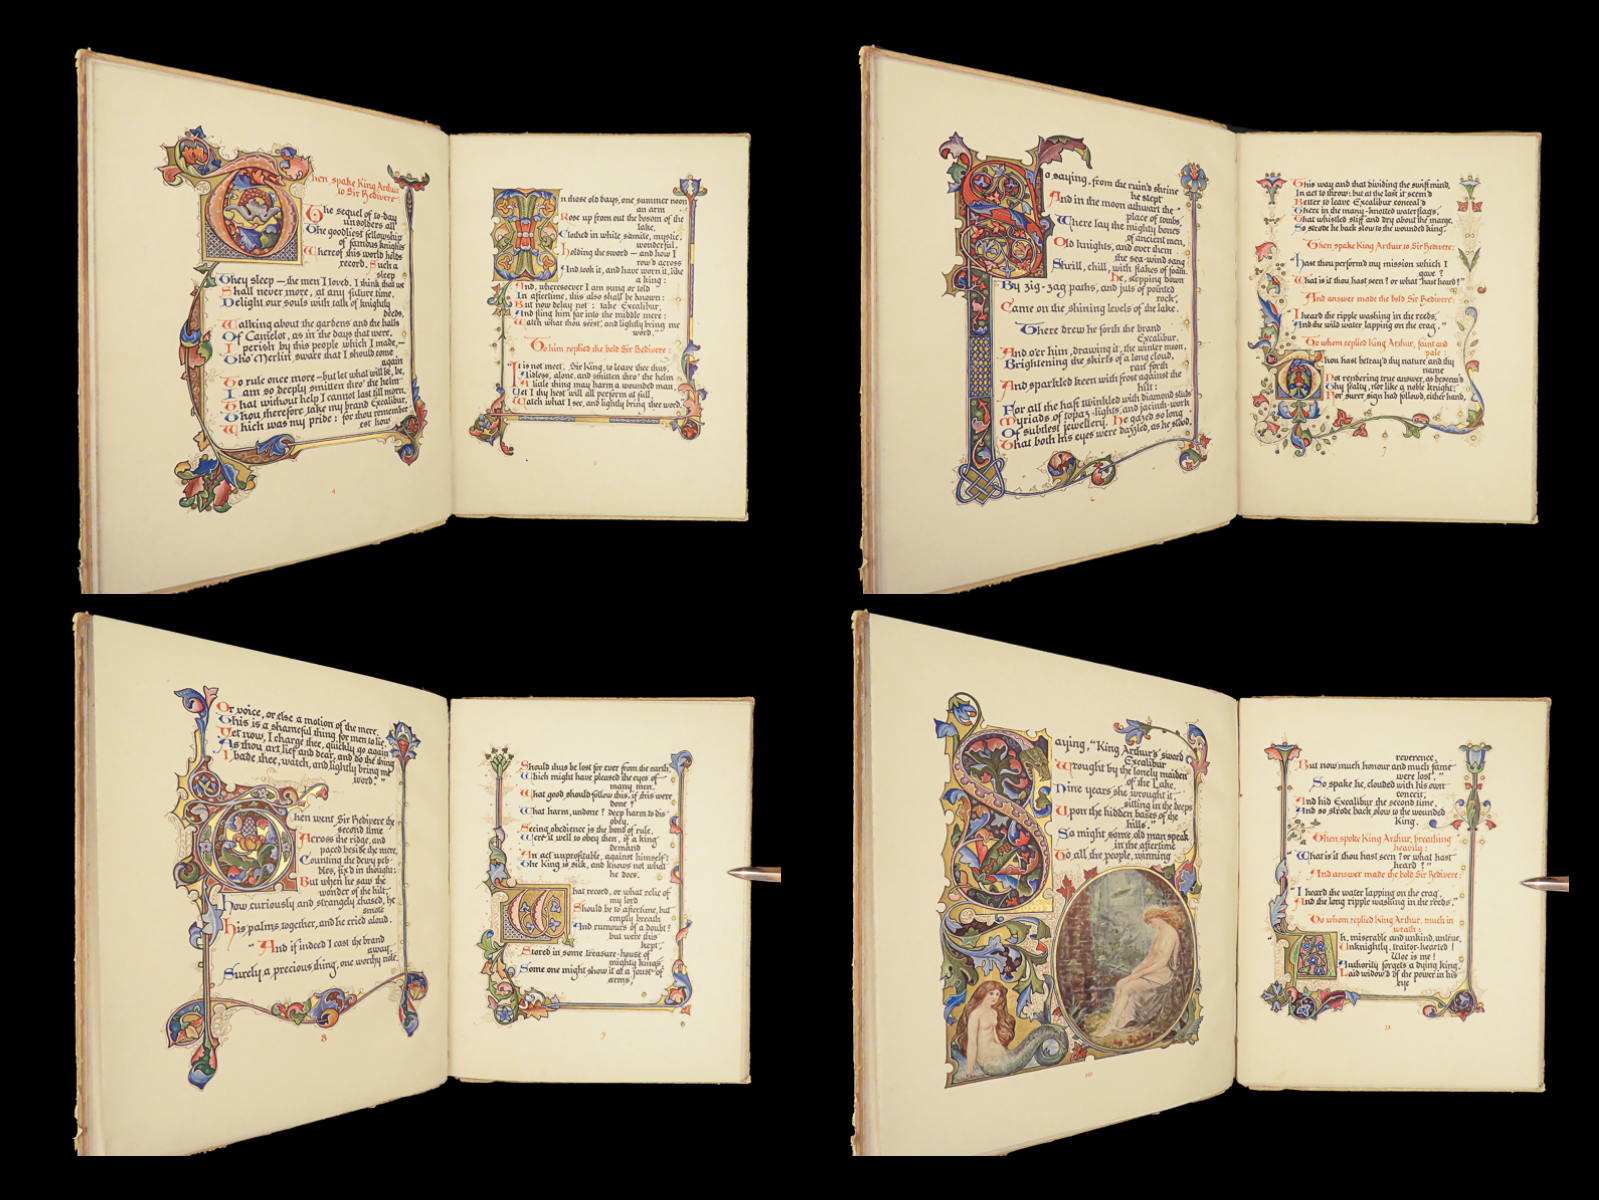 Then spake King Arthur
to Sir Bedivere:
The sequel of to-day
unsolders all
The goodliest fellowship
of famous knights
Whereof this world holds
record. Such a
sleep
They sleep — the men I loved. I think that we
Shall never more, at any future time,
Delight our souls with talk of knightly
deeds,
Walking about the gardens and the halls
Of Camelot, as in the days that were.
I perish by this people which I made,—
Tho' Merlin sware that I should come
again
To rule once more—but let what will be, be,
I am so deeply smitten thro' the helm
That without help I cannot last till morn.
Thou therefore take my brand Excalibur,
Which was my pride: for thou remember
est how
4
In those old days, one summer noon
an arm
Rose up from out the bosom of the
lake,
Clothed in white samite, mystic,
wonderful,
Holding the sword — and how I
row'd across
And took it, and have worn it, like
a king:
And, wheresoever I am sung or told
In aftertime, this also shall be known:
But now delay not: take Excalibur,
And fling him far into the middle mere:
Watch what thou seëst, and lightly bring me
word."
To him replied the bold Sir Bedivere:
"It is not meet, Sir King, to leave thee thus,
Aidless, alone, and smitten thro' the helm
A little thing may harm a wounded man.
Yet I thy hest will all perform at full,
Watch what I see, and lightly bring thee word."
So saying, from the ruin'd shrine
he stept
And in the moon athwart the
place of tombs,
Where lay the mighty bones
of ancient men,
Old knights, and over them
the sea-wind sang
Shrill, chill, with flakes of foam.
He, stepping down
By zig-zag paths, and juts of pointed
rock,
Came on the shining levels of the lake.
There drew he forth the brand
Excalibur,
And o'er him, drawing it, the winter moon,
Brightening the skirts of a long cloud,
ran forth
And sparkled keen with frost against the
hilt:
For all the haft twinkled with diamond studs
Myriads of topaz-lights, and jacinth-work
Of subtlest jewellery. He gazed so long
That both his eyes were dazzled, as he stood,
6
This way and that dividing the swift mind,
In act to throw: but at the last it seem'd
Better to leave Excalibur conceal'd
There in the many-knotted waterflags,
That whistled stiff and dry about the marge.
So strode he back slow to the wounded king.
Then spake King Arthur to Sir Bedivere:
"Hast thou perform'd my mission which I
gave?
What is it thou hast seen? or what hast heard?"
And answer made the bold Sir Bedivere:
"I heard the ripple washing in the reeds,
And the wild water lapping on the crag."
To whom replied King Arthur, faint and
pale:
"Thou hast betray'd thy nature and thy
name
Not rendering true answer, as beseem'd
Thy fealty, nor like a noble knight:
For surer sign had follow'd, either hand,
7
Or voice, or else a motion of the mere.
This is a shameful thing for men to lie.
Yet now, I charge thee, quickly go again
As thou art lief and dear, and do the thing
I bade thee, watch, and lightly bring me
word."
Then went Sir Bedivere the
second time
Across the ridge, and
paced beside the mere,
Counting the dewy peb-
bles, fix'd in thought;
But when he saw the
wonder of the hilt,
How curiously and strangely chased, he
smote
His palms together, and he cried aloud.
"And if indeed I cast the brand
away,
Surely a precious thing, one worthy note,
8
Should thus be lost for ever from the earth,
Which might have pleased the eyes of
many men.
What good should follow this, if this were
done?
What harm, undone? Deep harm to dis
obey,
Seeing obedience is the bond of rule.
Were it well to obey then, if a king
demand
An act unprofitable, against himself?
The King is sick, and knows not what
he does.
What record, or what relic of
my lord
Should be to aftertime, but
empty breath
And rumours of a doubt?
but were this
kept,
Stored in some treasure-house of
mighty kings,
Some one might show it at a joust of
arms,
9
Saying, "King Arthur's sword
Excalibur
Wrought by the lonely maiden
of the Lake.
Nine years she wrought it,
sitting in the deeps
Upon the hidden bases of the
hills."
So might some old man speak
in the aftertime
To all the people, winning
10
reverence,
But now much honour and much fame
were lost."
So spake he, clouded with his own
conceit,
And hid Excalibur the second time,
And so strode back slow to the wounded
King.
Then spoke King Arthur, breathing
heavily:
"What is it thou hast seen? or what hast
heard?"
And answer made the bold Sir Bedivere:
"I heard the water lapping on the crag,
And the long ripple washing in the reeds."
To whom replied King Arthur, much in
wrath:
"Ah, miserable and unkind, untrue,
Unknightly, traitor-hearted!
Woe is me!
Authority forgets a dying king,
Laid widow'd of the power in his
eye
11